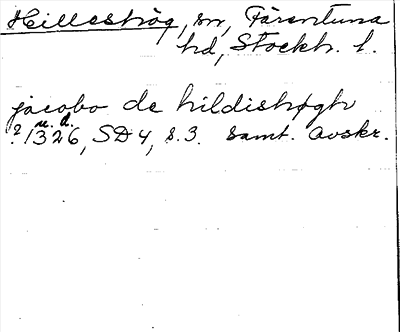 Hilleshög, sn, Färentuna
hd, Stockh. l.
jacobo de hildishøgh
u. d.
? 1326, SD 4, s. 3. Samt. avskr.